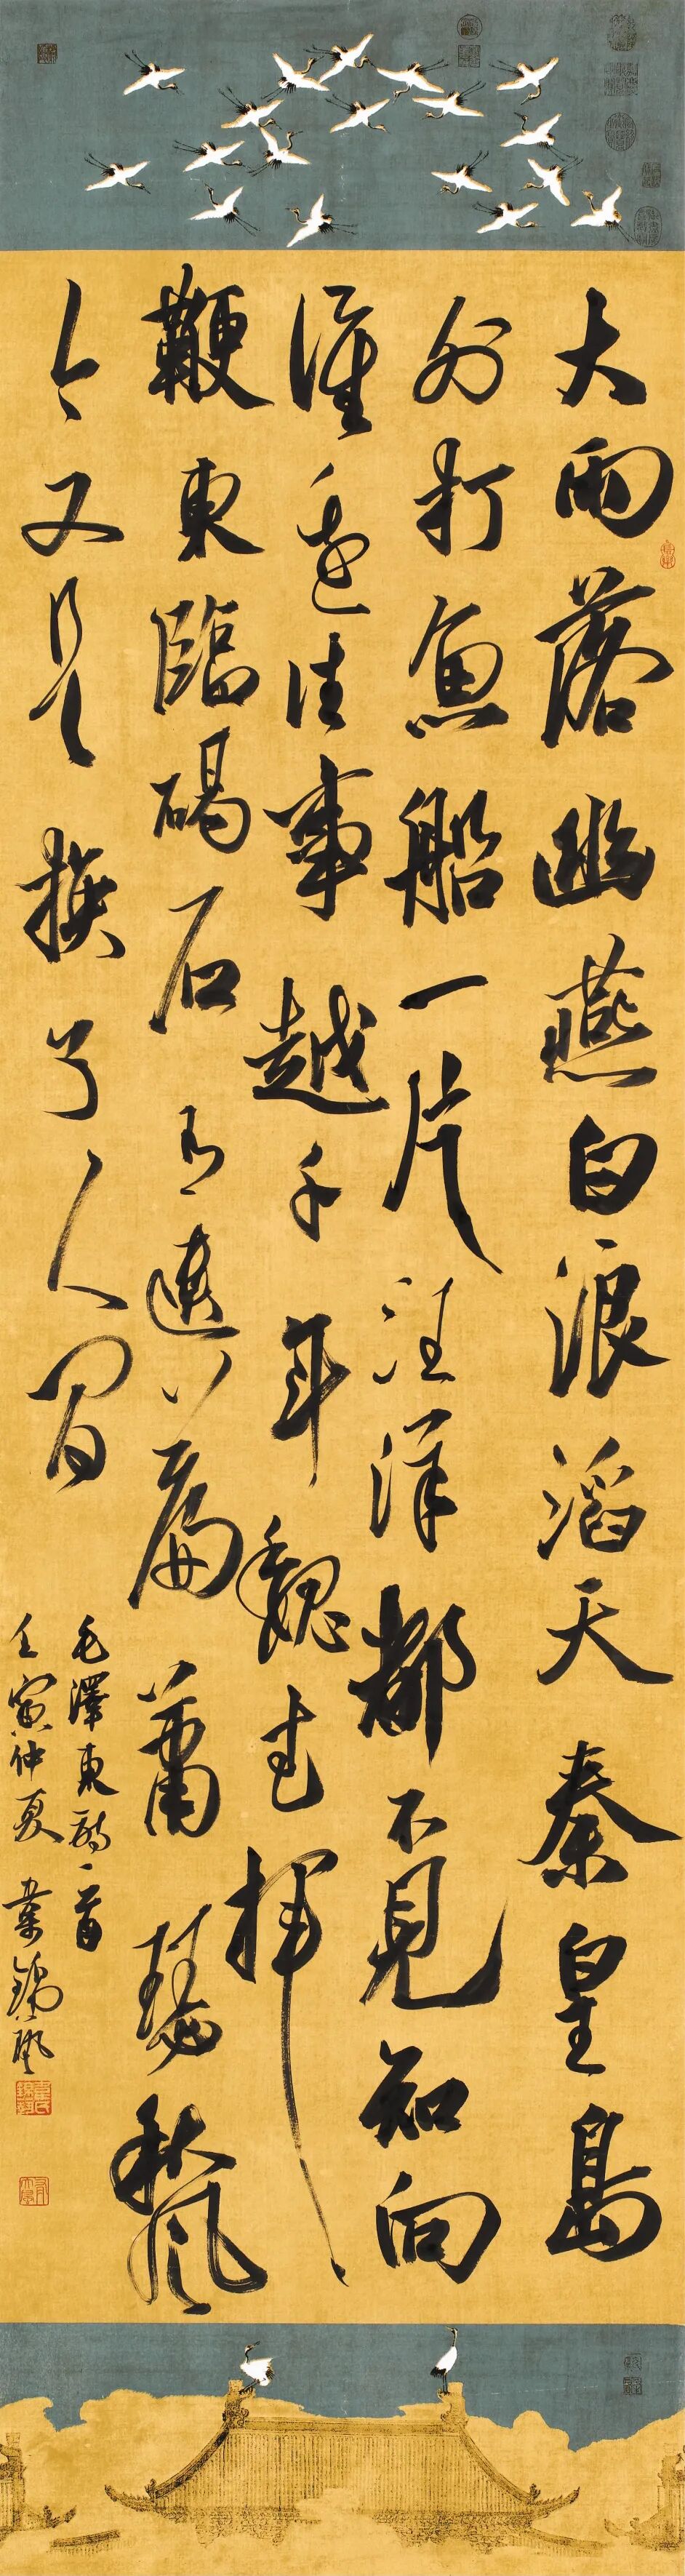 大雨落幽燕白浪滔天秦皇島
外打魚船一片汪洋都不見知向
誰邊往事越千年魏武揮
鞭東臨碣石有遺篇蕭瑟秋風
今又是換了人間
毛澤東詞一首
壬寅仲夏